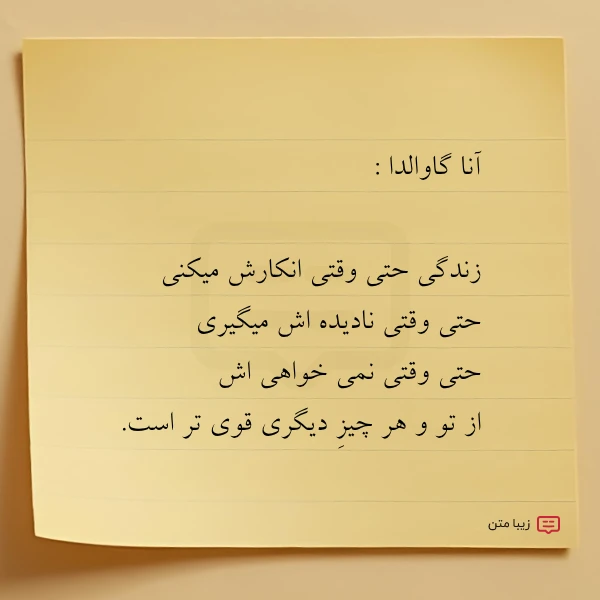 آنا گاوالدا :
زندگی حتی وقتی انکارش میکنی
حتی وقتی نادیده اش میگیری
حتی وقتی نمی خواهی اش
از تو و هر چیزِ دیگری قوی تر است.
زیبا متن